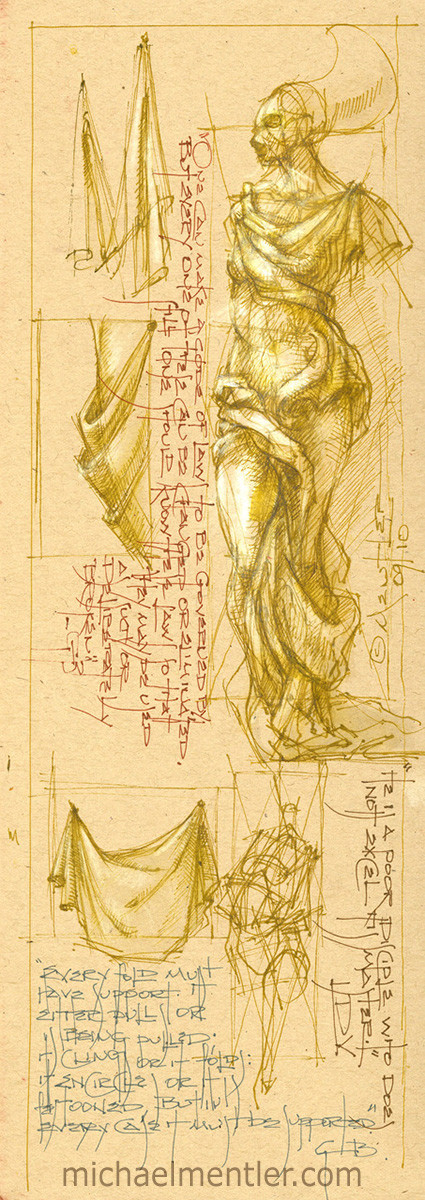 "One can make a code of law to be governed by
But every one of them can be changed or eliminated.
Still one should know the law so that
they may be used
as such or
deliberately
broken"
-GB
"He is a poor disciple who does
not excel his master."
LDV
"Every fold must
have support. It
either pulls or
is being pulled.
It clings or it folds:
it encircles or it is
festooned but in
every case it must be supported"
GB.
michaelmentler.com